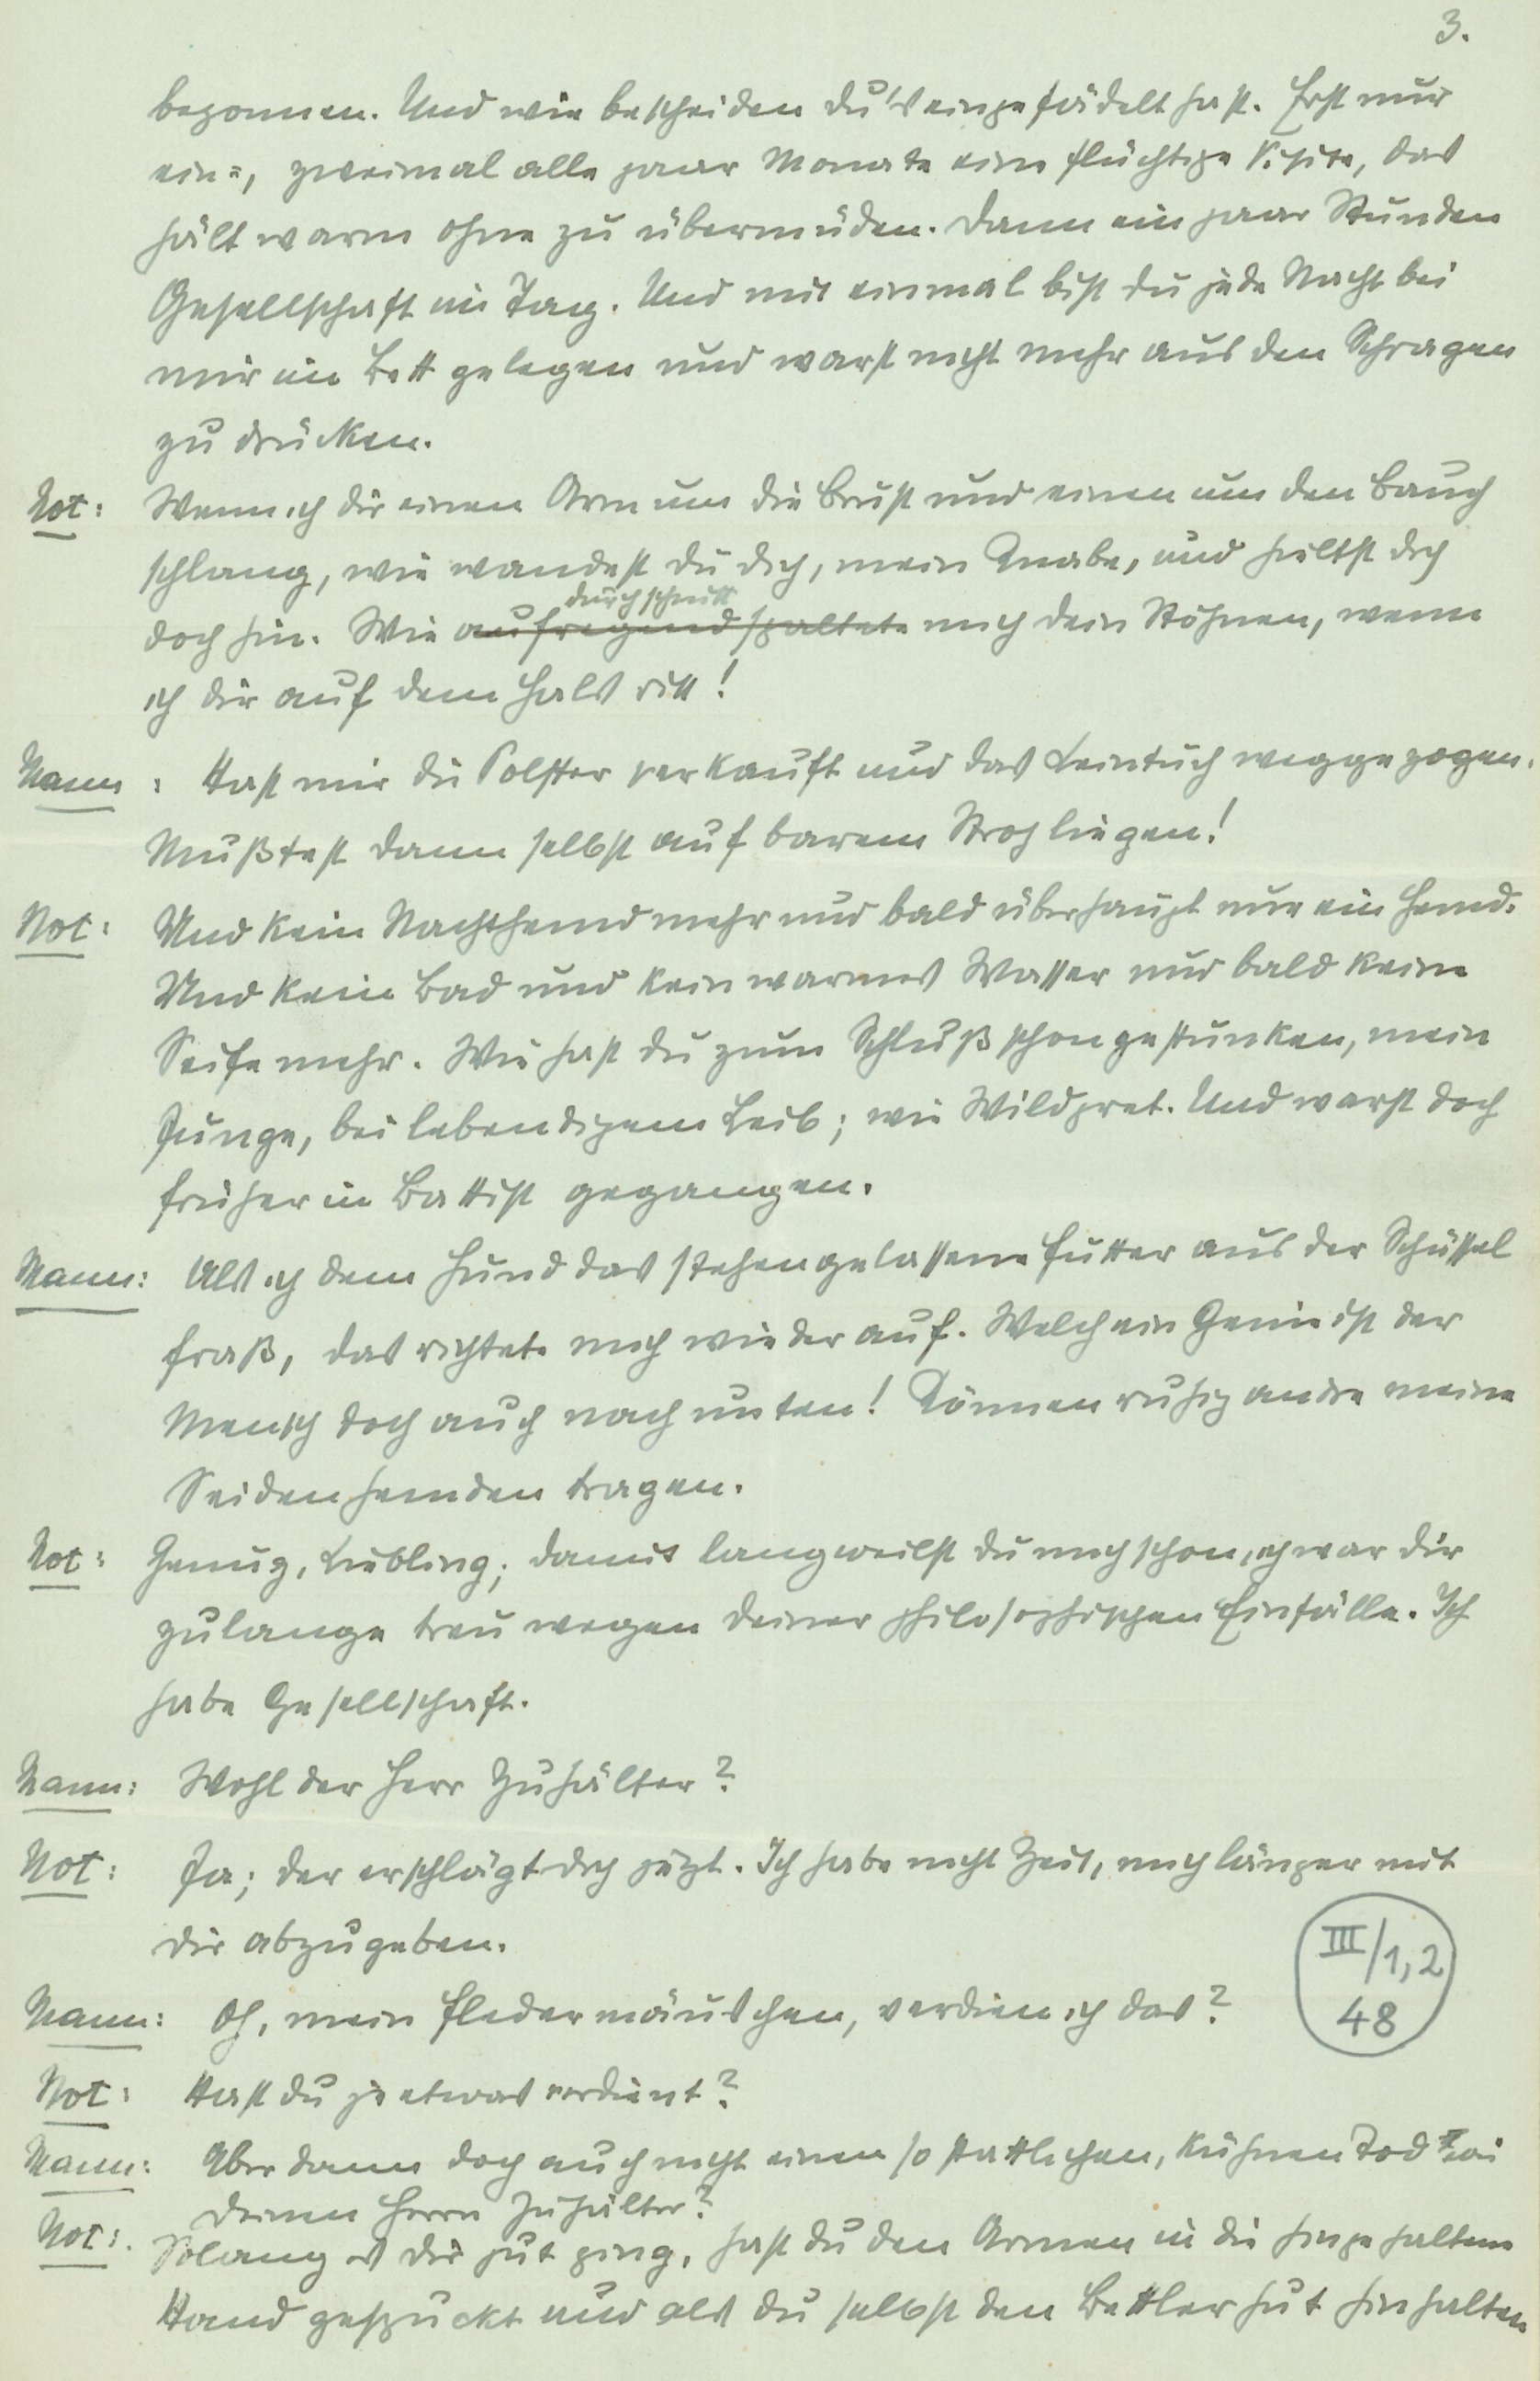 3.
begonnen. Und wie bescheiden du's eingefädelt hast. Erst nur
ein-, zweimal alle paar Monate eine flüchtige Visite, das
hält warm ohne zu übermüden. Dann ein paar Stunden
Gesellschaft im Tag. Und mit einmal bist du jede Nacht bei
mir im Bett gelegen und warst nicht mehr aus den Schragen
zu drücken.
Not: Wenn ich dir einen Arm um die Brust und einen um den Bauch
schlang, wie wandest du dich, mein Knabe, und hieltst dich
durchschnitt
doch hin. Wie aufregend spaltete mich dein Stöhnen, wenn
ich dir auf dem Hals ritt!
Mann: Hast mir die Polster verkauft und das Leintuch weggezogen.
Mußtest dann selbst auf barem Stroh liegen!
Not: Und kein Nachthemd mehr und bald überhaupt nur ein Hemd.
Und kein Bad und kein warmes Wasser und bald keine
Seife mehr. Wie hast du zum Schluß schon gestunken, mein
Junge, bei lebendigem Leib; wie Wildpret. Und warst doch
früher in Battist gegangen.
Mann: Als ich dem Hund das stehengelassene Futter aus der Schüssel
fraß, das richtete mich wieder auf. Welch ein Genie ist der
Mensch doch auch nach unten! Können ruhig andre meine
Seidenhemden tragen.
Not: Genug, Liebling; damit langweilst du mich schon, ich war dir
zulange treu wegen deiner philosophischen Einfälle. Ich
habe Gesellschaft.
Mann: Wohl der Herr Zuhälter?
Not: Ja; der erschlägt dich jetzt. Ich habe nicht Zeit, mich länger mit
dir abzugeben.
III/1,2
48
Mann: Oh, mein Fledermäuschen, verdien ich das?
Not: Hast du je etwas verdient?
Mann: Aber dann doch auch nicht einen so stattlichen, kühnen Tod wie
deinen Herrn Zuhälter?
Not: Solang es dir gut ging, hast du den Armen in die hingehaltene
Hand gespuckt und als du selbst den Bettlerhut hinhalten